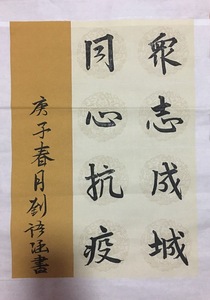 衆志成城
同心抗疫
庚子春月劉語涵書